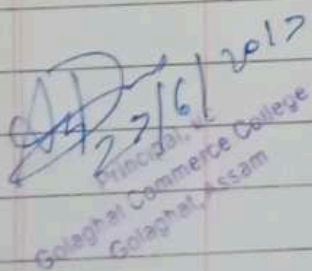 27/6/2017
Principal, i/c
Golaghat Commerce College
Golaghat, Assam